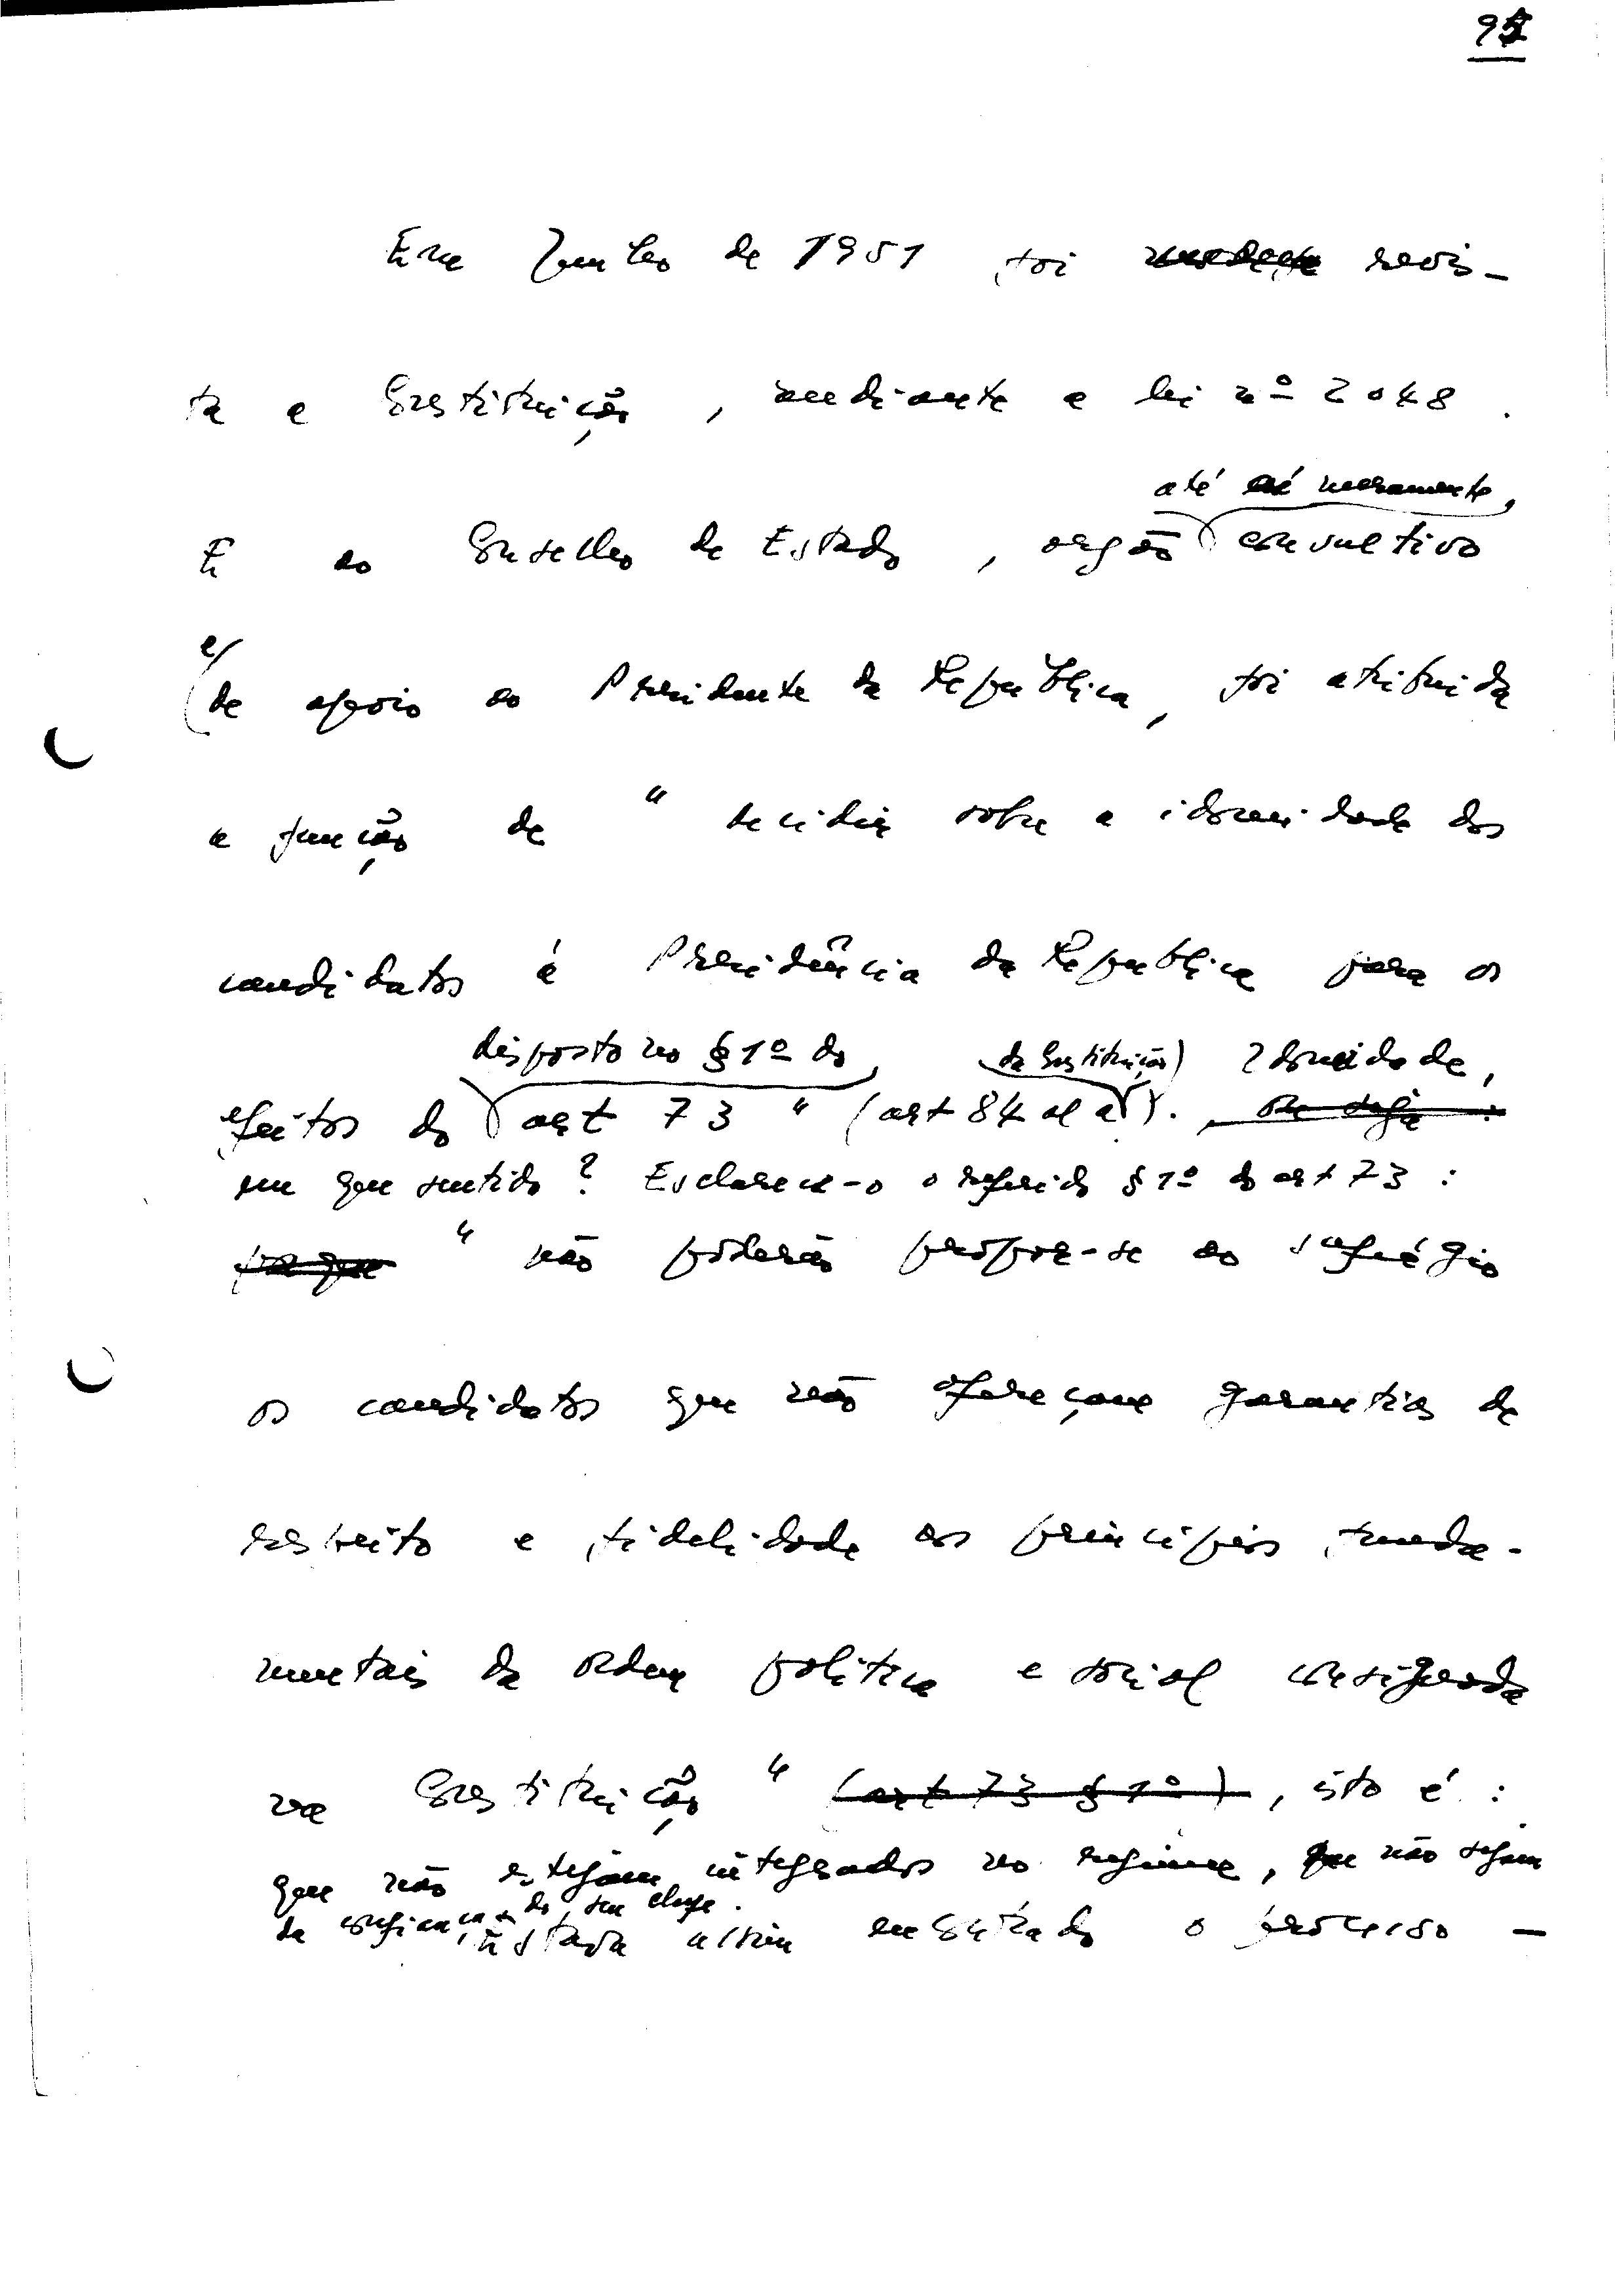 Em Junho de 1951 foi revis-
ta a Constituição, mediante a lei nº 2048.
até meramente
E ao Conselho de Estado, orgão consultivo
e
de apoio ao Presidente da República, foi atribuida
a função de "decidir sobre a idoneidade dos
candidatos á Presidência da Republica para os
disposto no § 1º do da Constituição) Idoneidade,
efeitos do art 73" (art 84 al a).
em que sentido? Esclarece-o o referido § 1º do art 73:
"não poderão propor-se ao sufrágio
os candidatos que não ofereçam garantias de
respeito e fidelidade aos princípios funda-
mentais da ordem politica e social consignada
na Constituição" (art 73 § 1º), isto é:
que não estejam integrados no regime, que não sejam
da confiança do seu chefe.
Estava assim encontrado o processo -